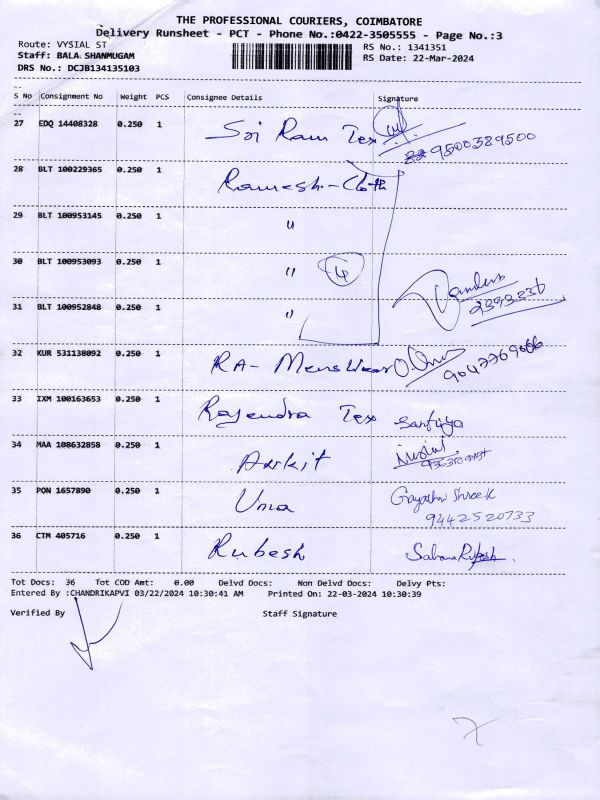 THE PROFESSIONAL COURIERS, COIMBATORE
Delivery Runsheet - PCT - Phone No.:0422-3505555 - Page No.:3
Route: VYSIAL ST RS No.: 1341351
Staff: BALA SHANMUGAM RS Date: 22-Mar-2024
DRS No.: DCJB134135103
S No Consignment No Weight PCS Consignee Details Signature
27 EDQ 14408328 0.250 1 Sri Ram Tex 9500389500
28 BLT 100229365 0.250 1 Ramesh-Cloth
29 BLT 100953145 0.250 1 "
30 BLT 100953093 0.250 1 " 4
31 BLT 100952848 0.250 1 " 2393230
32 KUR 531138092 0.250 1 RA- Menswear 9047769066
33 IXM 100163653 0.250 1 Rajendra Tex
34 MAA 108632858 0.250 1 Ankit
35 PON 1657890 0.250 1 Uma Gayathri Shree K
9442520733
36 CTM 405716 0.250 1 Rubesh
Tot Docs: 36 Tot COD Amt: 0.00 Delvd Docs: Non Delvd Docs: Delvy Pts:
Entered By :CHANDRIKAPVI 03/22/2024 10:30:41 AM Printed On: 22-03-2024 10:30:39
Verified By Staff Signature